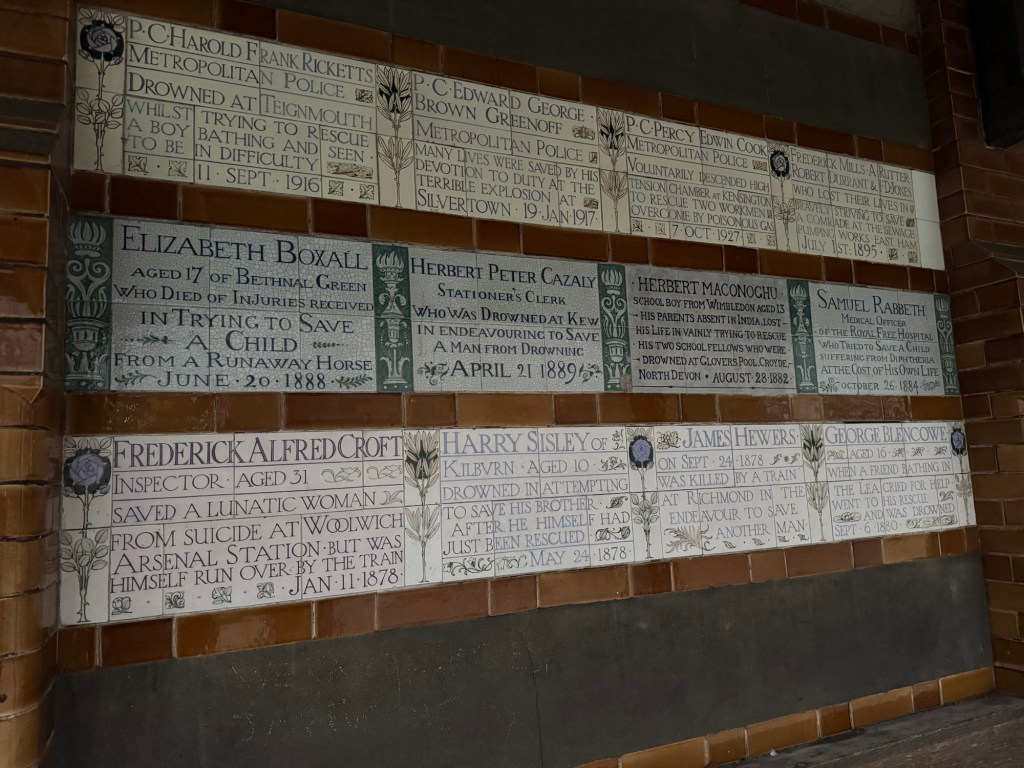 P·C·HAROLD FRANK RICKETTS
METROPOLITAN POLICE
DROWNED AT TEIGNMOUTH
WHILST TRYING TO RESCUE
A BOY BATHING AND SEEN
TO BE IN DIFFICULTY
11 SEPT 1916
P·C·EDWARD GEORGE
BROWN GREENOFF
METROPOLITAN POLICE
MANY LIVES WERE SAVED BY HIS
DEVOTION TO DUTY AT THE
TERRIBLE EXPLOSION AT
SILVERTOWN · 19 JAN 1917
P·C·PERCY EDWIN COOK
METROPOLITAN POLICE
VOLUNTARILY DESCENDED HIGH
TENSION CHAMBER AT KENSINGTON
TO RESCUE TWO WORKMEN
OVERCOME BY POISONOUS GAS
7 OCT 1927
FREDERICK MILLS · A · RUTTER
ROBERT DURRANT & F·D·JONES
WHO LOST THEIR LIVES IN
BRAVELY STRIVING TO SAVE
A COMRADE AT THE SEWAGE
PUMPING WORKS EAST HAM
JULY 1ST 1895
ELIZABETH BOXALL
AGED 17 OF BETHNAL GREEN
WHO DIED OF INJURIES RECEIVED
IN TRYING TO SAVE
A CHILD
FROM A RUNAWAY HORSE
JUNE 20 · 1888
HERBERT PETER CAZALY
STATIONER'S CLERK
WHO WAS DROWNED AT KEW
IN ENDEAVOURING TO SAVE
A MAN FROM DROWNING
APRIL 21 1889
HERBERT MACONOGHU
SCHOOL BOY FROM WIMBLEDON AGED 13
HIS PARENTS ABSENT IN INDIA, LOST
HIS LIFE IN VAINLY TRYING TO RESCUE
HIS TWO SCHOOL FELLOWS WHO WERE
DROWNED AT GLOVERS POOL, CROYDE,
NORTH DEVON · AUGUST 28·1882
SAMUEL RABBETH
MEDICAL OFFICER
OF THE ROYAL FREE HOSPITAL
WHO TRIED TO SAVE A CHILD
SUFFERING FROM DIPHTHERIA
AT THE COST OF HIS OWN LIFE
OCTOBER 26 · 1884
FREDERICK ALFRED CROFT
INSPECTOR · AGED 31
SAVED A LUNATIC WOMAN
FROM SUICIDE AT WOOLWICH
ARSENAL STATION · BUT WAS
HIMSELF RUN OVER BY THE TRAIN
JAN · 11 · 1878
HARRY SISLEY OF
KILBURN · AGED 10
DROWNED IN ATTEMPTING
TO SAVE HIS BROTHER
AFTER HE HIMSELF HAD
JUST BEEN RESCUED
MAY 24 · 1878
JAMES HEWERS
ON SEPT · 24 · 1878
WAS KILLED BY A TRAIN
AT RICHMOND IN THE
ENDEAVOUR TO SAVE
ANOTHER MAN
GEORGE BLENCOWE
AGED 16
WHEN A FRIEND BATHING IN
THE LEA CRIED FOR HELP
WENT TO HIS RESCUE
AND WAS DROWNED
SEPT 6 1880